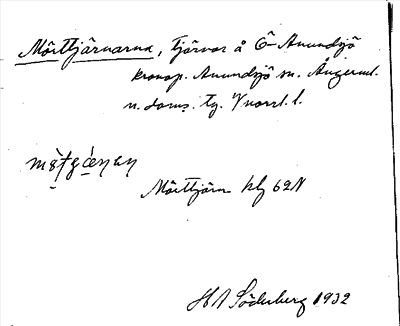 Mörttjärnarna, tjärnar å Ö-Anundsjö
kronop. Anundsjö sn. Ångerml.
n. doms. tg. Vnorrl. l.
Mörttjärn blg 62N
H A Söderberg 1932